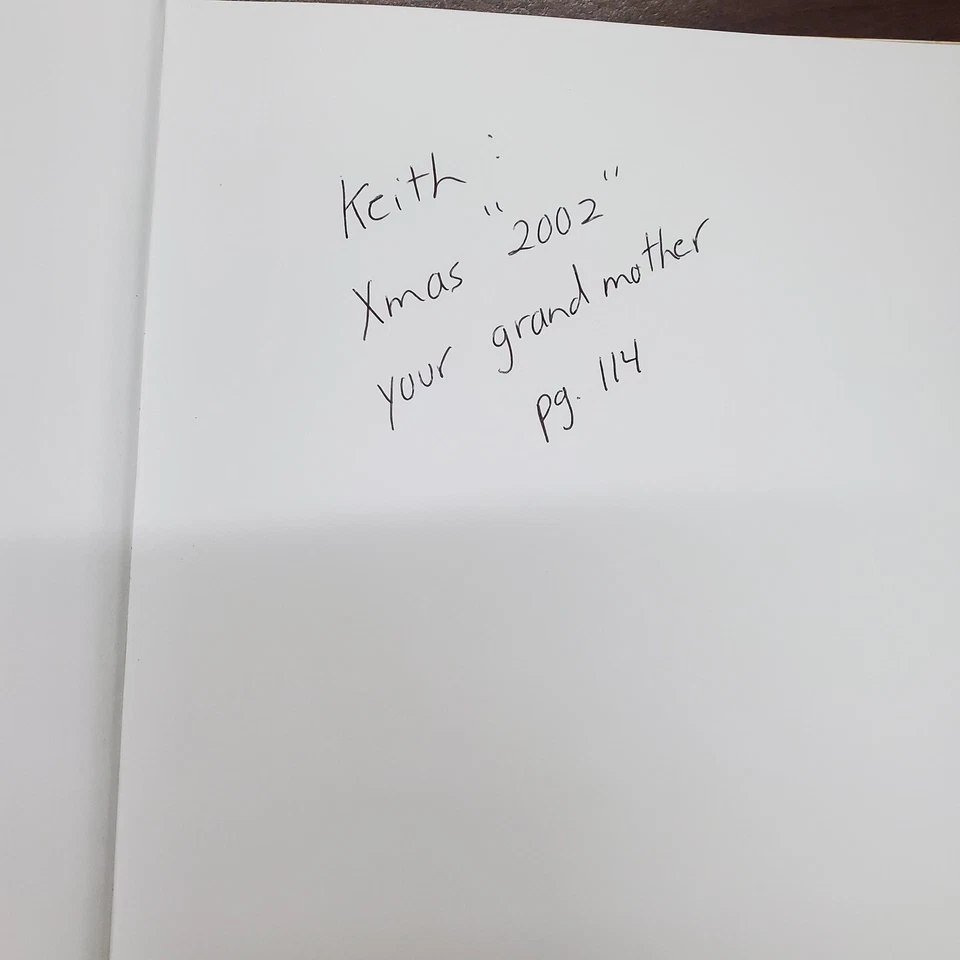 Keith :
Xmas "2002"
your grandmother
pg. 114